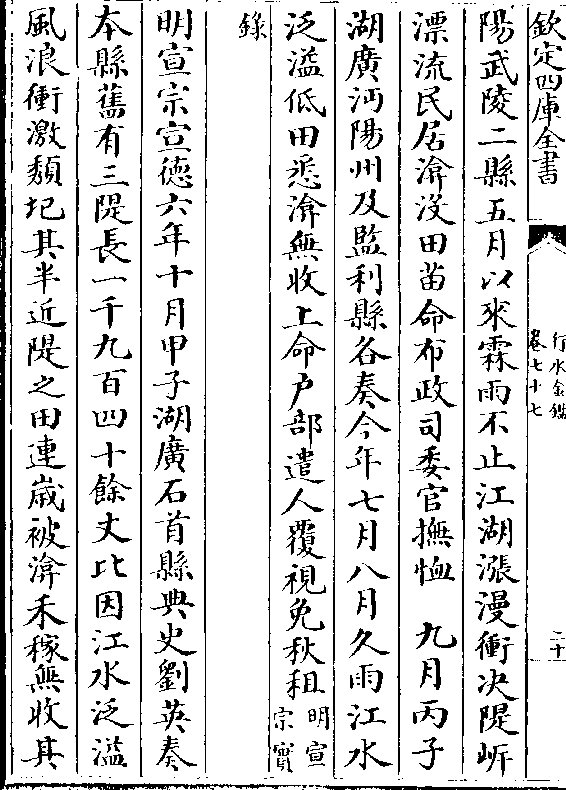 欽定四庫全書
行水金鑑
卷七十七
二十
陽武陵二縣五月以來霖雨不止江湖漲漫衝决隄岍
漂流民居渰沒田苗命布政司委官撫恤　九月丙子
湖廣沔陽州及監利縣各奏今年七月八月久雨江水
泛溢低田悉渰無收上命戶部遣人覆視免秋租明宣宗實
錄
明宣宗宣德六年十月甲子湖廣石首縣典史劉英奏
本縣舊有三隄長一千九百四十餘丈比因江水泛溢
風浪衝激頽圮其半近隄之田連歳被渰禾稼無收其